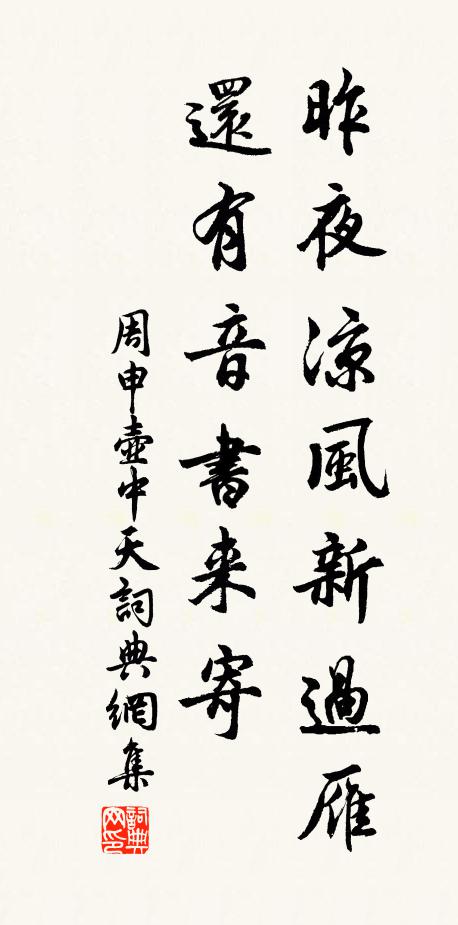 昨夜涼風新過雁
還有音書来寄
周申壺中天詞典網集
詞典网印